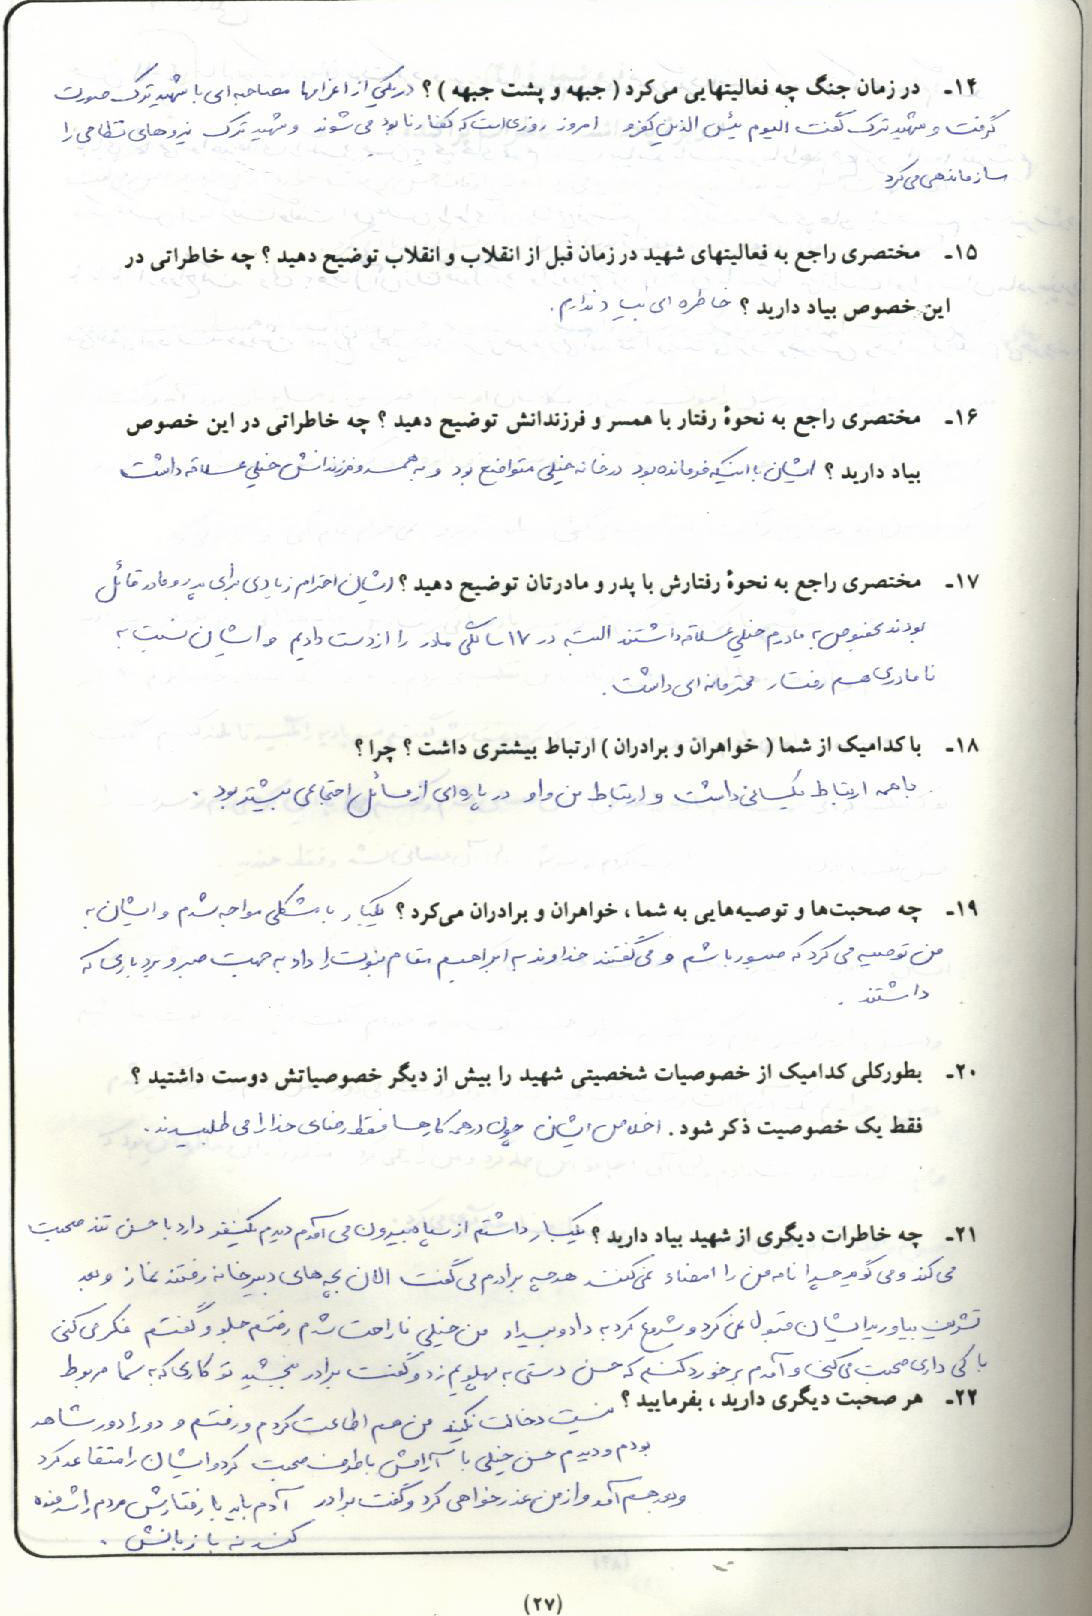 ۱۴ـ در زمان جنگ چه فعالیتهایی می‌کرد ( جبهه و پشت جبهه ) ؟ در یکی از اعزامها مصاحبه ای با شهید ترک صورت
گرفت و شهید ترک گفت الیوم یئس الذین کفرو امروز روزی است که کفار نابود می شوند و شهید ترک نیروهای نظامی را
سازماندهی می کرد
۱۵ـ مختصری راجع به فعالیتهای شهید در زمان قبل از انقلاب و انقلاب توضیح دهید ؟ چه خاطراتی در
این خصوص بیاد دارید ؟ خاطره ای بیاد ندارم .
۱۶ـ مختصری راجع به نحوۀ رفتار با همسر و فرزندانش توضیح دهید ؟ چه خاطراتی در این خصوص
بیاد دارید ؟ ایشان با اینکه فرمانده بود در خانه خیلی متواضع بود و به همسر و فرزندانش خیلی علاقه داشت
۱۷ـ مختصری راجع به نحوۀ رفتارش با پدر و مادرتان توضیح دهید ؟ ایشان احترام زیادی برای پدر و مادر قائل
بودند بخصوص به مادرم خیلی علاقه داشتند البته در ۱۷ سالگی مادر را از دست دادیم و ایشان نسبت به
نامادری هم رفتار محترمانه ای داشت .
۱۸ـ با کدامیک از شما ( خواهران و برادران ) ارتباط بیشتری داشت ؟ چرا ؟
با همه ارتباط یکسانی داشت و ارتباط من و او در پاره ای از مسائل اجتماعی بیشتر بود .
۱۹ـ چه صحبت‌ها و توصیه‌هایی به شما ، خواهران و برادران می‌کرد ؟ یکبار با مشکلی مواجه شدم و ایشان به
من توصیه می کرد که صبور باشم و می گفتند خداوند به ابراهیم مقام نبوت را داد به جهت صبر و بردباری که
داشتند .
۲۰ـ بطورکلی کدامیک از خصوصیات شخصیتی شهید را بیش از دیگر خصوصیاتش دوست داشتید ؟
فقط یک خصوصیت ذکر شود . اخلاص ایشان چون در همه کارها فقط رضای خدا را می طلبیدند .
۲۱ـ چه خاطرات دیگری از شهید بیاد دارید ؟ یکبار داشتم از سپاه بیرون می آمدم دیدم یکنفر دارد با حسن تند صحبت
می کند و می گوید چرا نامه من را امضاء نمی کنند هر چه برادرم می گفت الان بچه های دبیرخانه رفتند نماز و بعد
تشریف بیاورید ایشان قبول نمی کرد و شروع کرد به داد و بیداد من خیلی ناراحت شدم رفتم جلو و گفتم فکر می کنی
با کی داری صحبت می کنی و آمدم برخورد کنم که حسن دستی به پهلویم زد و گفت برادر ببخشید تو کاری که به شما مربوط
۲۲ـ هر صحبت دیگری دارید ، بفرمایید ؟ نیست دخالت نکنید من هم اطاعت کردم و رفتم و دورادور شاهد
بودم و دیدم حسن خیلی با آرامش با طرف صحبت کرد و ایشان را متقاعد کرد
و بعد هم آمد و از من عذرخواهی کرد و گفت برادر آدم باید با رفتارش مردم را شرمنده
کند نه با زبانش .
(۲۷)